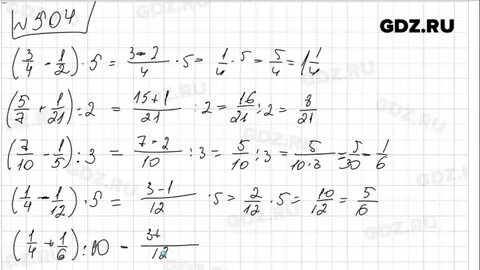 N 504
GDZ.RU
(3/4 - 1/2) · 5 = (3-2)/4 · 5 = 1/4 · 5 = 5/4 = 1 1/4
(5/7 + 1/21) : 2 = (15+1)/21 : 2 = 16/21 : 2 = 8/21
(7/10 - 1/5) : 3 = (7-2)/10 : 3 = 5/10 : 3 = 5/(10·3) = 5/30 = 1/6
(1/4 - 1/12) · 5 = (3-1)/12 · 5 = 2/12 · 5 = 10/12 = 5/6
(1/4 + 1/6) : 10 - 3+/12